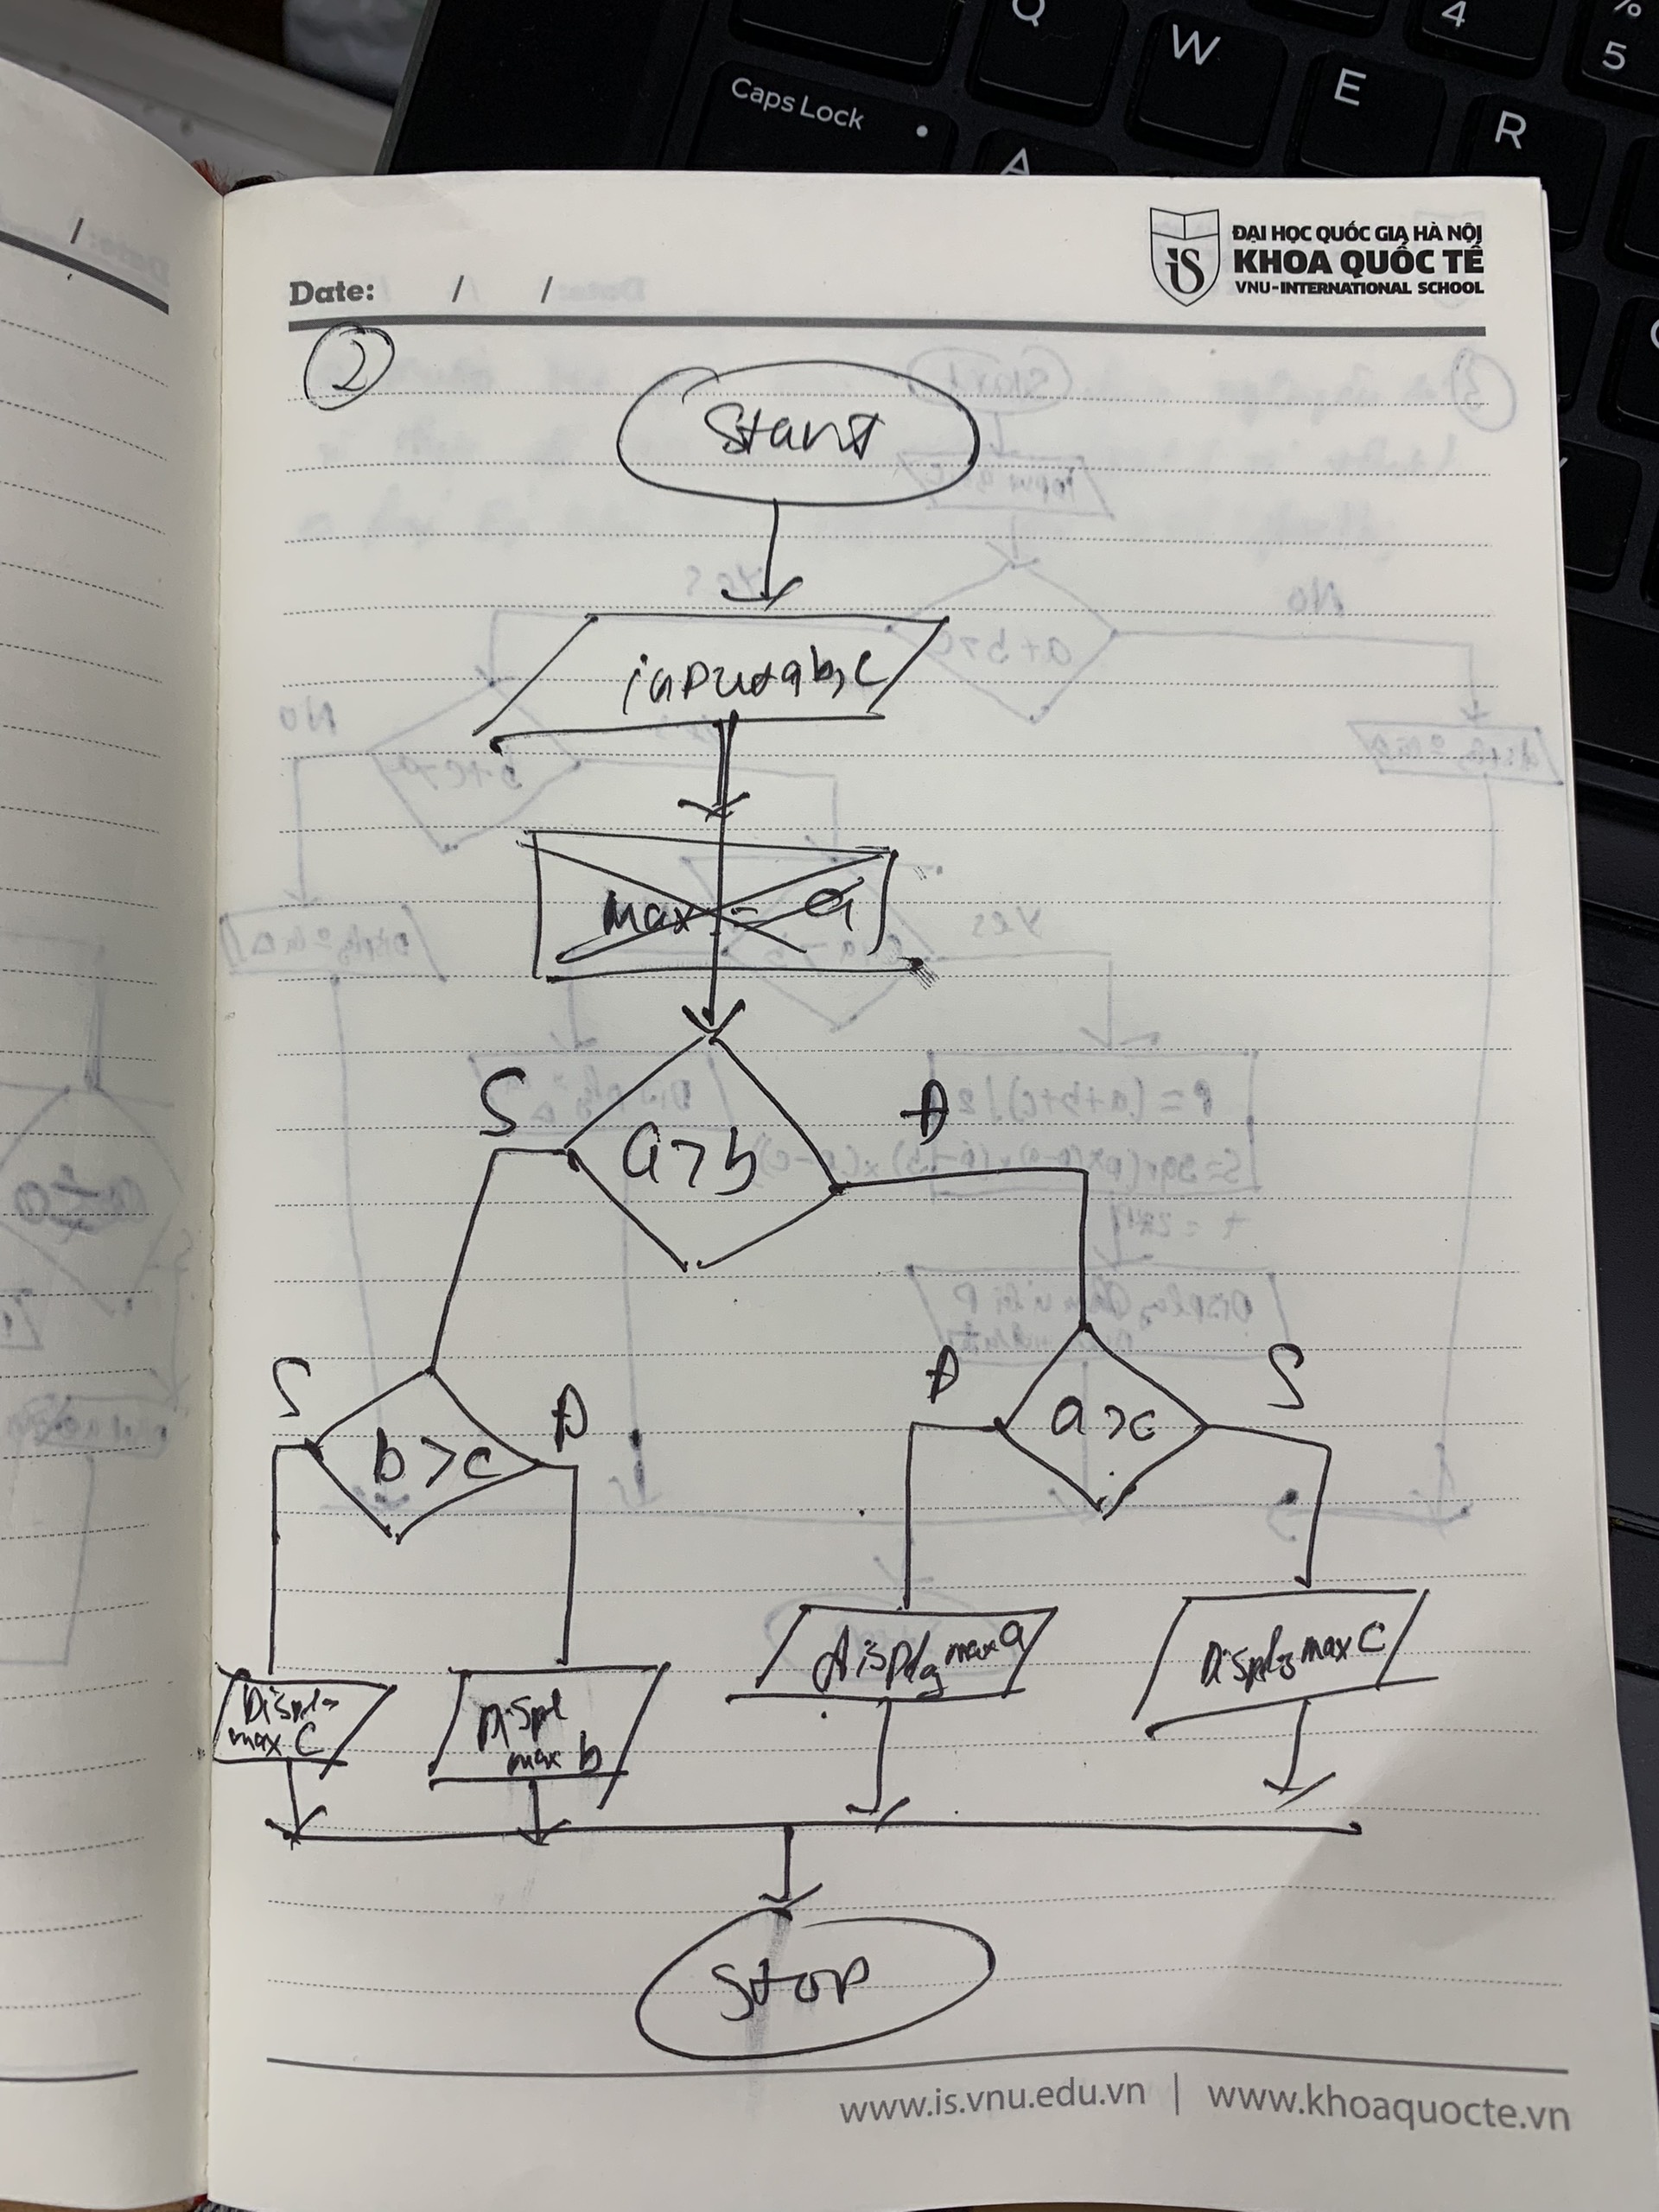 Q
W
E
R
4
%
5
Caps Lock
A
/
ĐẠI HỌC QUỐC GIA HÀ NỘI
KHOA QUỐC TẾ
VNU-INTERNATIONAL SCHOOL
iS
Date: / /
2
Start
input a b, c
max = a
S
a > b
Đ
S
b > c
Đ
Đ
a > c
S
Display
max C
Displ
max b
display max a
Display max C
Stop
www.is.vnu.edu.vn | www.khoaquocte.vn